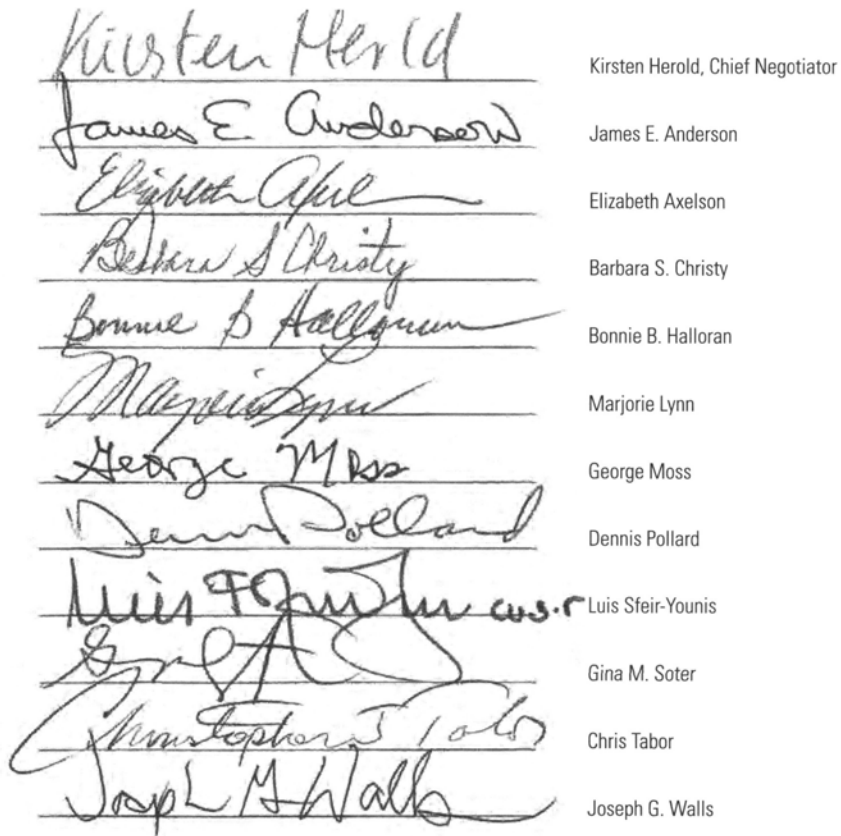 Kirsten Herold Kirsten Herold, Chief Negotiator
James E Anderson James E. Anderson
Elizabeth Elizabeth Axelson
Barbara S Christy Barbara S. Christy
Bonnie B Halloran Bonnie B. Halloran
Marjorie Lynn Marjorie Lynn
George Moss George Moss
Dennis Pollard Dennis Pollard
Luis Luis Sfeir-Younis
Gina M. Soter
Christopher J Tabor Chris Tabor
Joseph G Walls Joseph G. Walls